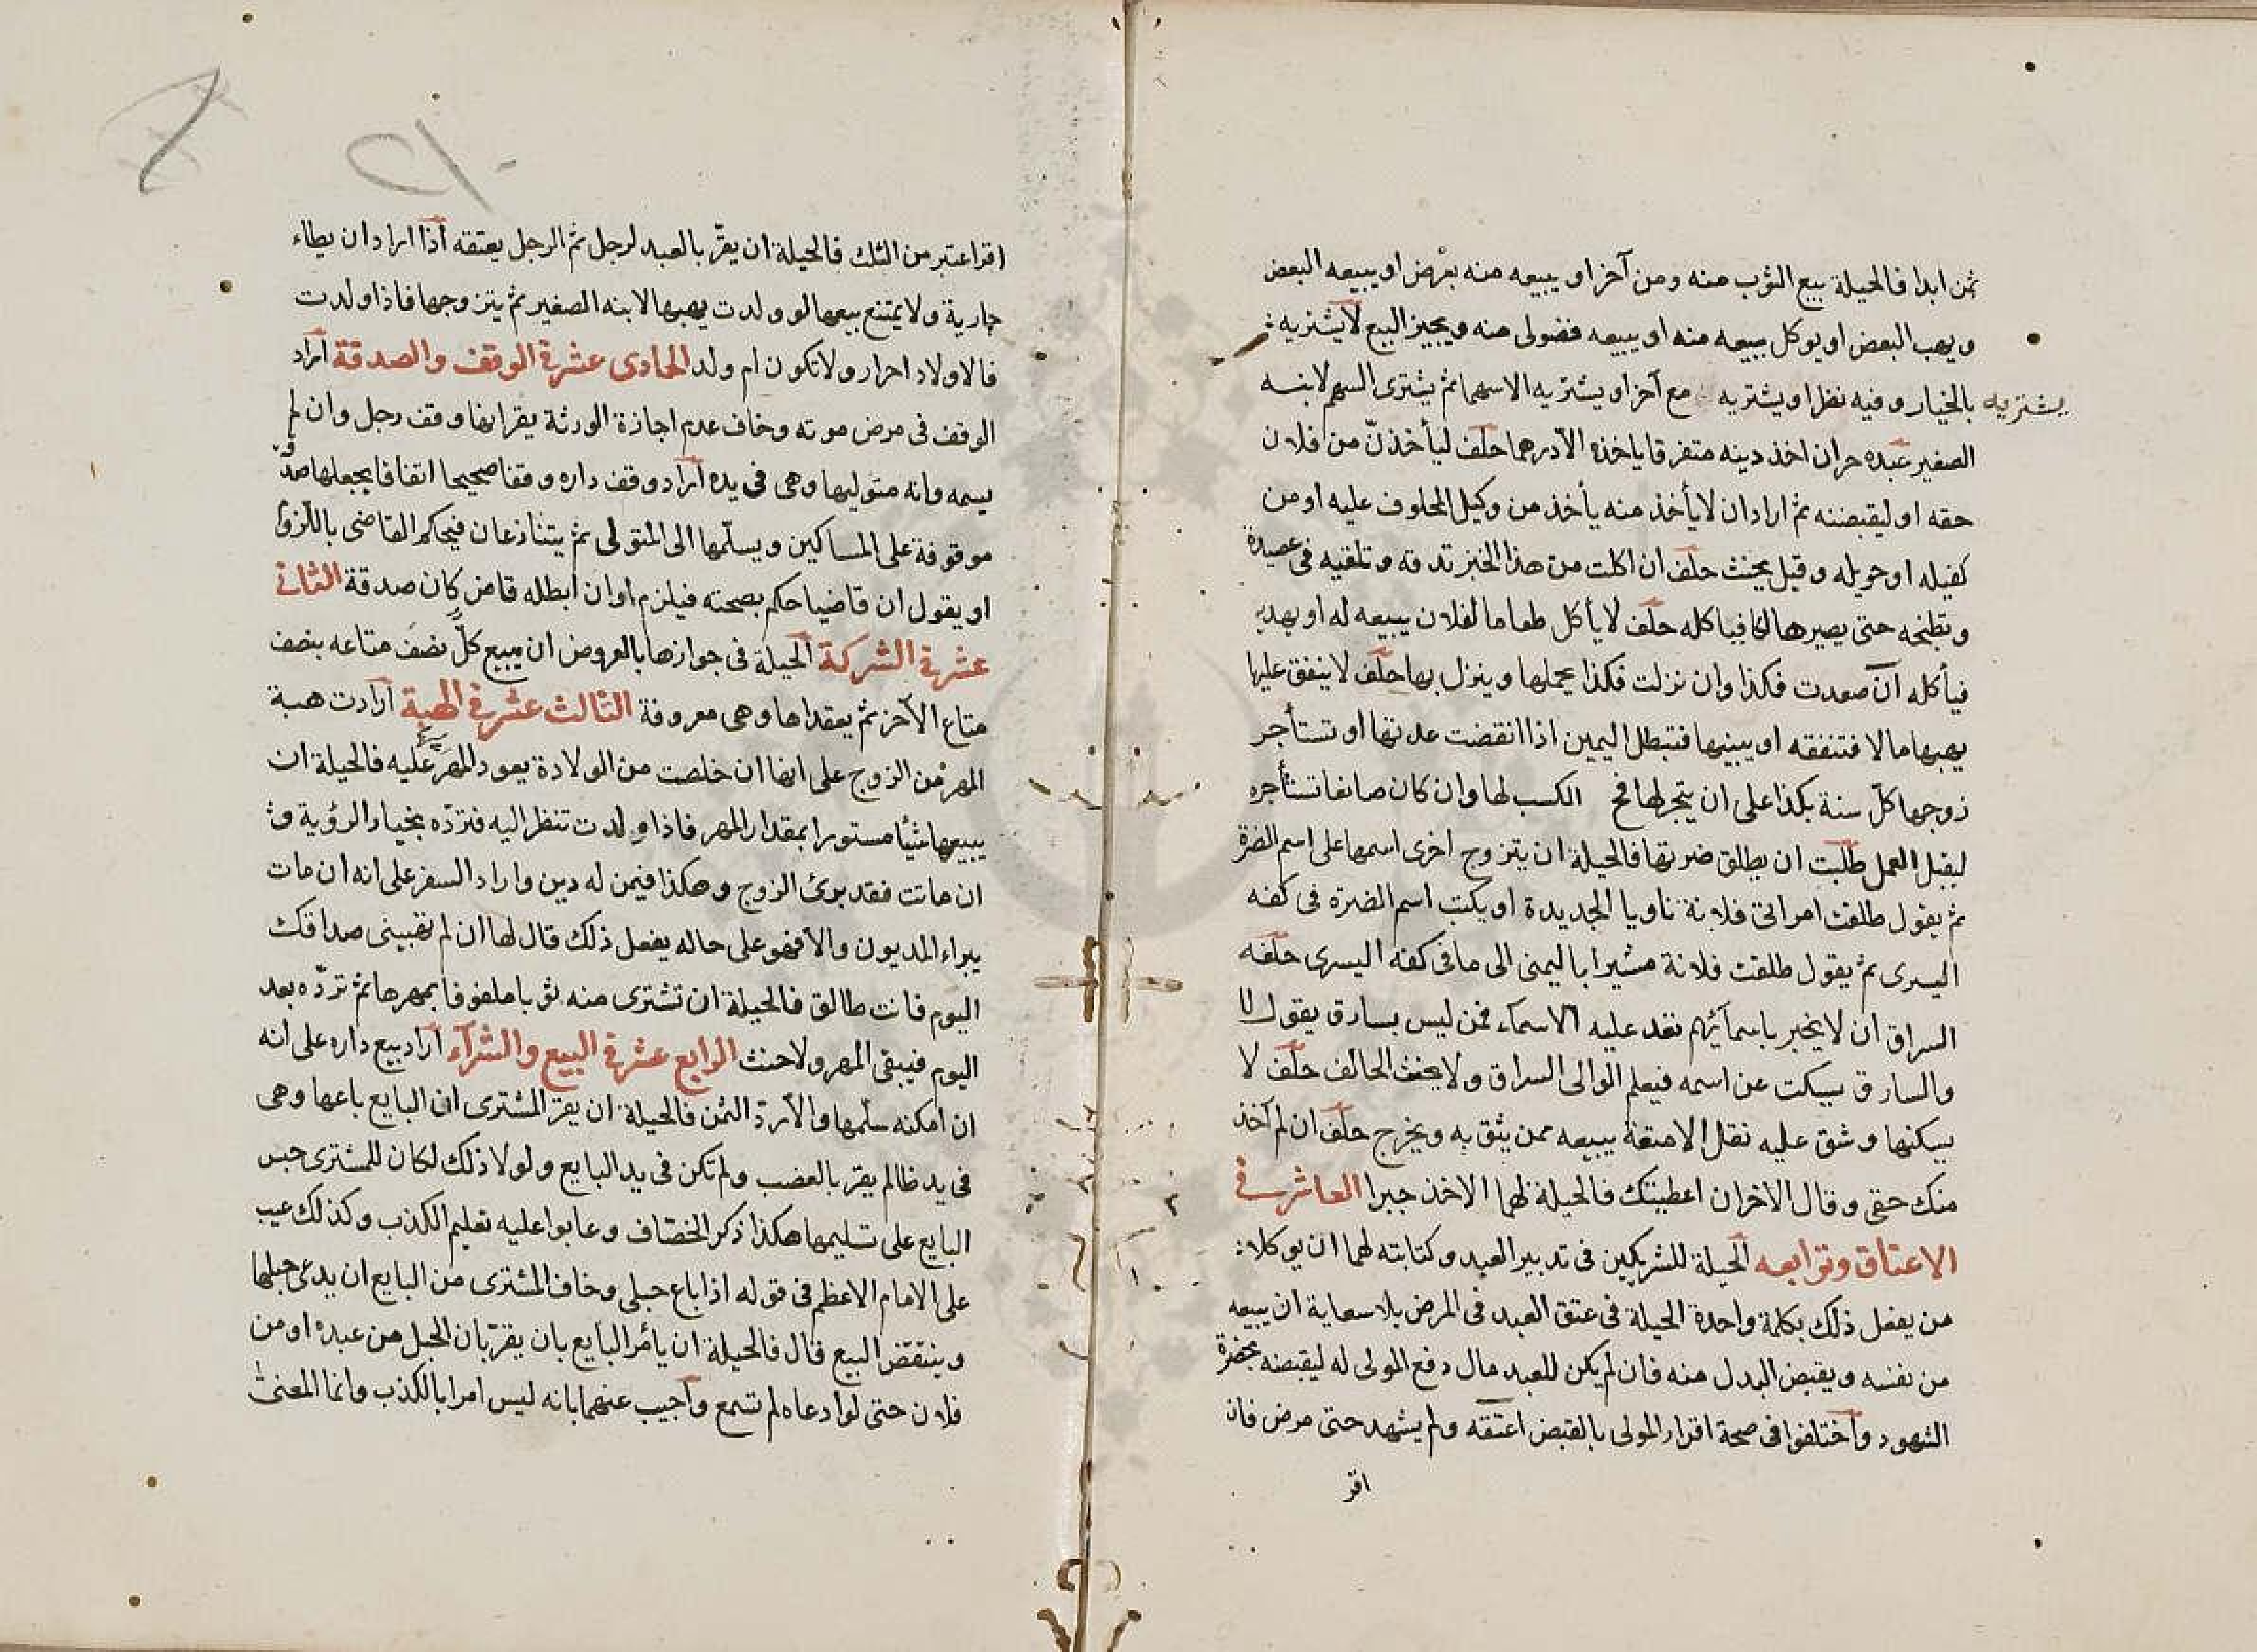 ثمن ابدا فالحيلة بيع الثوب منه ومن آخر او يبيعه منه بعرض او يبيعه البعض
ويهب البعض او يوكل ببيعه منه او يبيعه فضولى منه ويجيز البيع لا يشتريه
يشتريه بالخيار وفيه نظر او يشتريه مع آخر او يشتريه الا سهما ثم يشترى السهم لابنه
الصغير عبده حر ان اخذ دينه متفرقا ياخذه الا درهما حلف ليأخذن من فلان
حقه او ليقبضنه ثم اراد ان لا يأخذ منه يأخذ من وكيل المحلوف عليه او من
كفيله او حويله وقيل يحنث حلف ان اكلت من هذا الخبز تدقه وتلقيه فى عصيدة
وتطبخه حتى يصير هالكا فياكله حلف لا يأكل طعاما لفلان يبيعه له او يهديه
فيأكله ان صعدت فكذا وان نزلت فكذا يحملها وينزل بها حلف لا ينفق عليها
يهبها مالا فتنفقه او يبينها فتبطل اليمين اذا انقضت عدتها او تستأجر
زوجها كل سنة بكذا على ان يتجر لها فح الكسب لها وان كان صانعا تستأجره
ليقبل العمل طلبت ان يطلق ضرتها فالحيلة ان يتزوج اخرى اسمها على اسم الضرة
ثم يقول طلقت امراتى فلانة ناويا الجديدة او يكتب اسم الضرة فى كفه
اليسرى ثم يقول طلقت فلانة مشيرا باليمنى الى ما فى كفه اليسرى حلفه
السراق ان لا يخبر باسمآئهم تعد عليه الاسماء فمن ليس بسارق يقول لا
والسارق يسكت عن اسمه فيعلم الوالى السراق ولا يحنث الحالف حلف لا
يسكنها وشق عليه نقل الامتعة يبيعه ممن يثق به ويخرج حلف ان لم آخذ
منك حقى وقال الآخر ان اعطيتك فالحيلة لهما الاخذ جبرا العاشر فى
الاعتاق وتوابعه الحيلة للشريكين فى تدبير العبد وكتابته لهما ان يوكلا
من يفعل ذلك بكلمة واحدة الحيلة فى عتق العبد فى المرض بلا سعاية ان يبيعه
من نفسه ويقبض البدل منه فان لم يكن للعبد مال دفع المولى له ليقبضه بحضرة
الشهود واختلفوا فى صحة اقرار المولى بالقبض اعتقه ولم يشهد حتى مرض فان
اقر
اقر اعتبر من الثلث فالحيلة ان يقر بالعبد لرجل ثم الرجل يعتقه اذا اراد ان يطاء
جارية ولا يمتنع بيعها لو ولدت يهبها لابنه الصغير ثم يتزوجها فاذا ولدت
فالاولاد احرار ولا تكون ام ولد الحادى عشر فى الوقف والصدقة اراد
الوقف فى مرض موته وخاف عدم اجازة الورثة يقر انها وقف رجل وان لم
يسمه وانه متوليها وهى فى يده اراد وقف داره وقفا صحيحا اتفاقا يجعلها صدقة
موقوفة على المساكين ويسلمها الى المتولى ثم يتنازعان فيحكم القاضى باللزوم
او يقول ان قاضيا حكم بصحته فيلزم او ان ابطله قاض كان صدقة الثانى
عشر فى الشركة الحيلة فى جوازها بالعروض ان يبيع كل نصف متاعه بنصف
متاع الآخر ثم يعقداها وهى معروفة الثالث عشر فى الهبة ارادت هبة
المهر من الزوج على انها ان خلصت من الولادة يعود المهر عليه فالحيلة ان
يبيعها شيأ مستورا بمقدار المهر فاذا ولدت تنظر اليه فترده بخيار الرؤية و
ان ماتت فقد برئ الزوج وهكذا فيمن له دين واراد السفر على انه ان مات
يبراء المديون والا فهو على حاله يفعل ذلك قال لها ان لم تهبينى صداقك
اليوم فانت طالق فالحيلة ان تشترى منه ثوبا ملفوفا بمهرها ثم ترده بعد
اليوم فيبقى المهر ولا حنث الرابع عشر فى البيع والشرآء اراد بيع داره على انه
ان امكنه سلمها والا رد الثمن فالحيلة ان يقر المشترى ان البايع باعها وهى
فى يد ظالم يقر بالغصب ولم تكن فى يد البايع ولولا ذلك لكان للمشترى حبس
البايع على تسليمها هكذا ذكر الخصاف وعابوا عليه تعليم الكذب وكذلك عيب
على الامام الاعظم فى قوله اذا باع حبلى وخاف المشترى من البايع ان يدعى حبلها
وينتقض البيع قال فالحيلة ان يأمر البايع بان يقر بان الحبل من عبده او من
فلان حتى لو ادعاه لم تسمع واجيب عنهما بانه ليس امرا بالكذب وانما المعنى